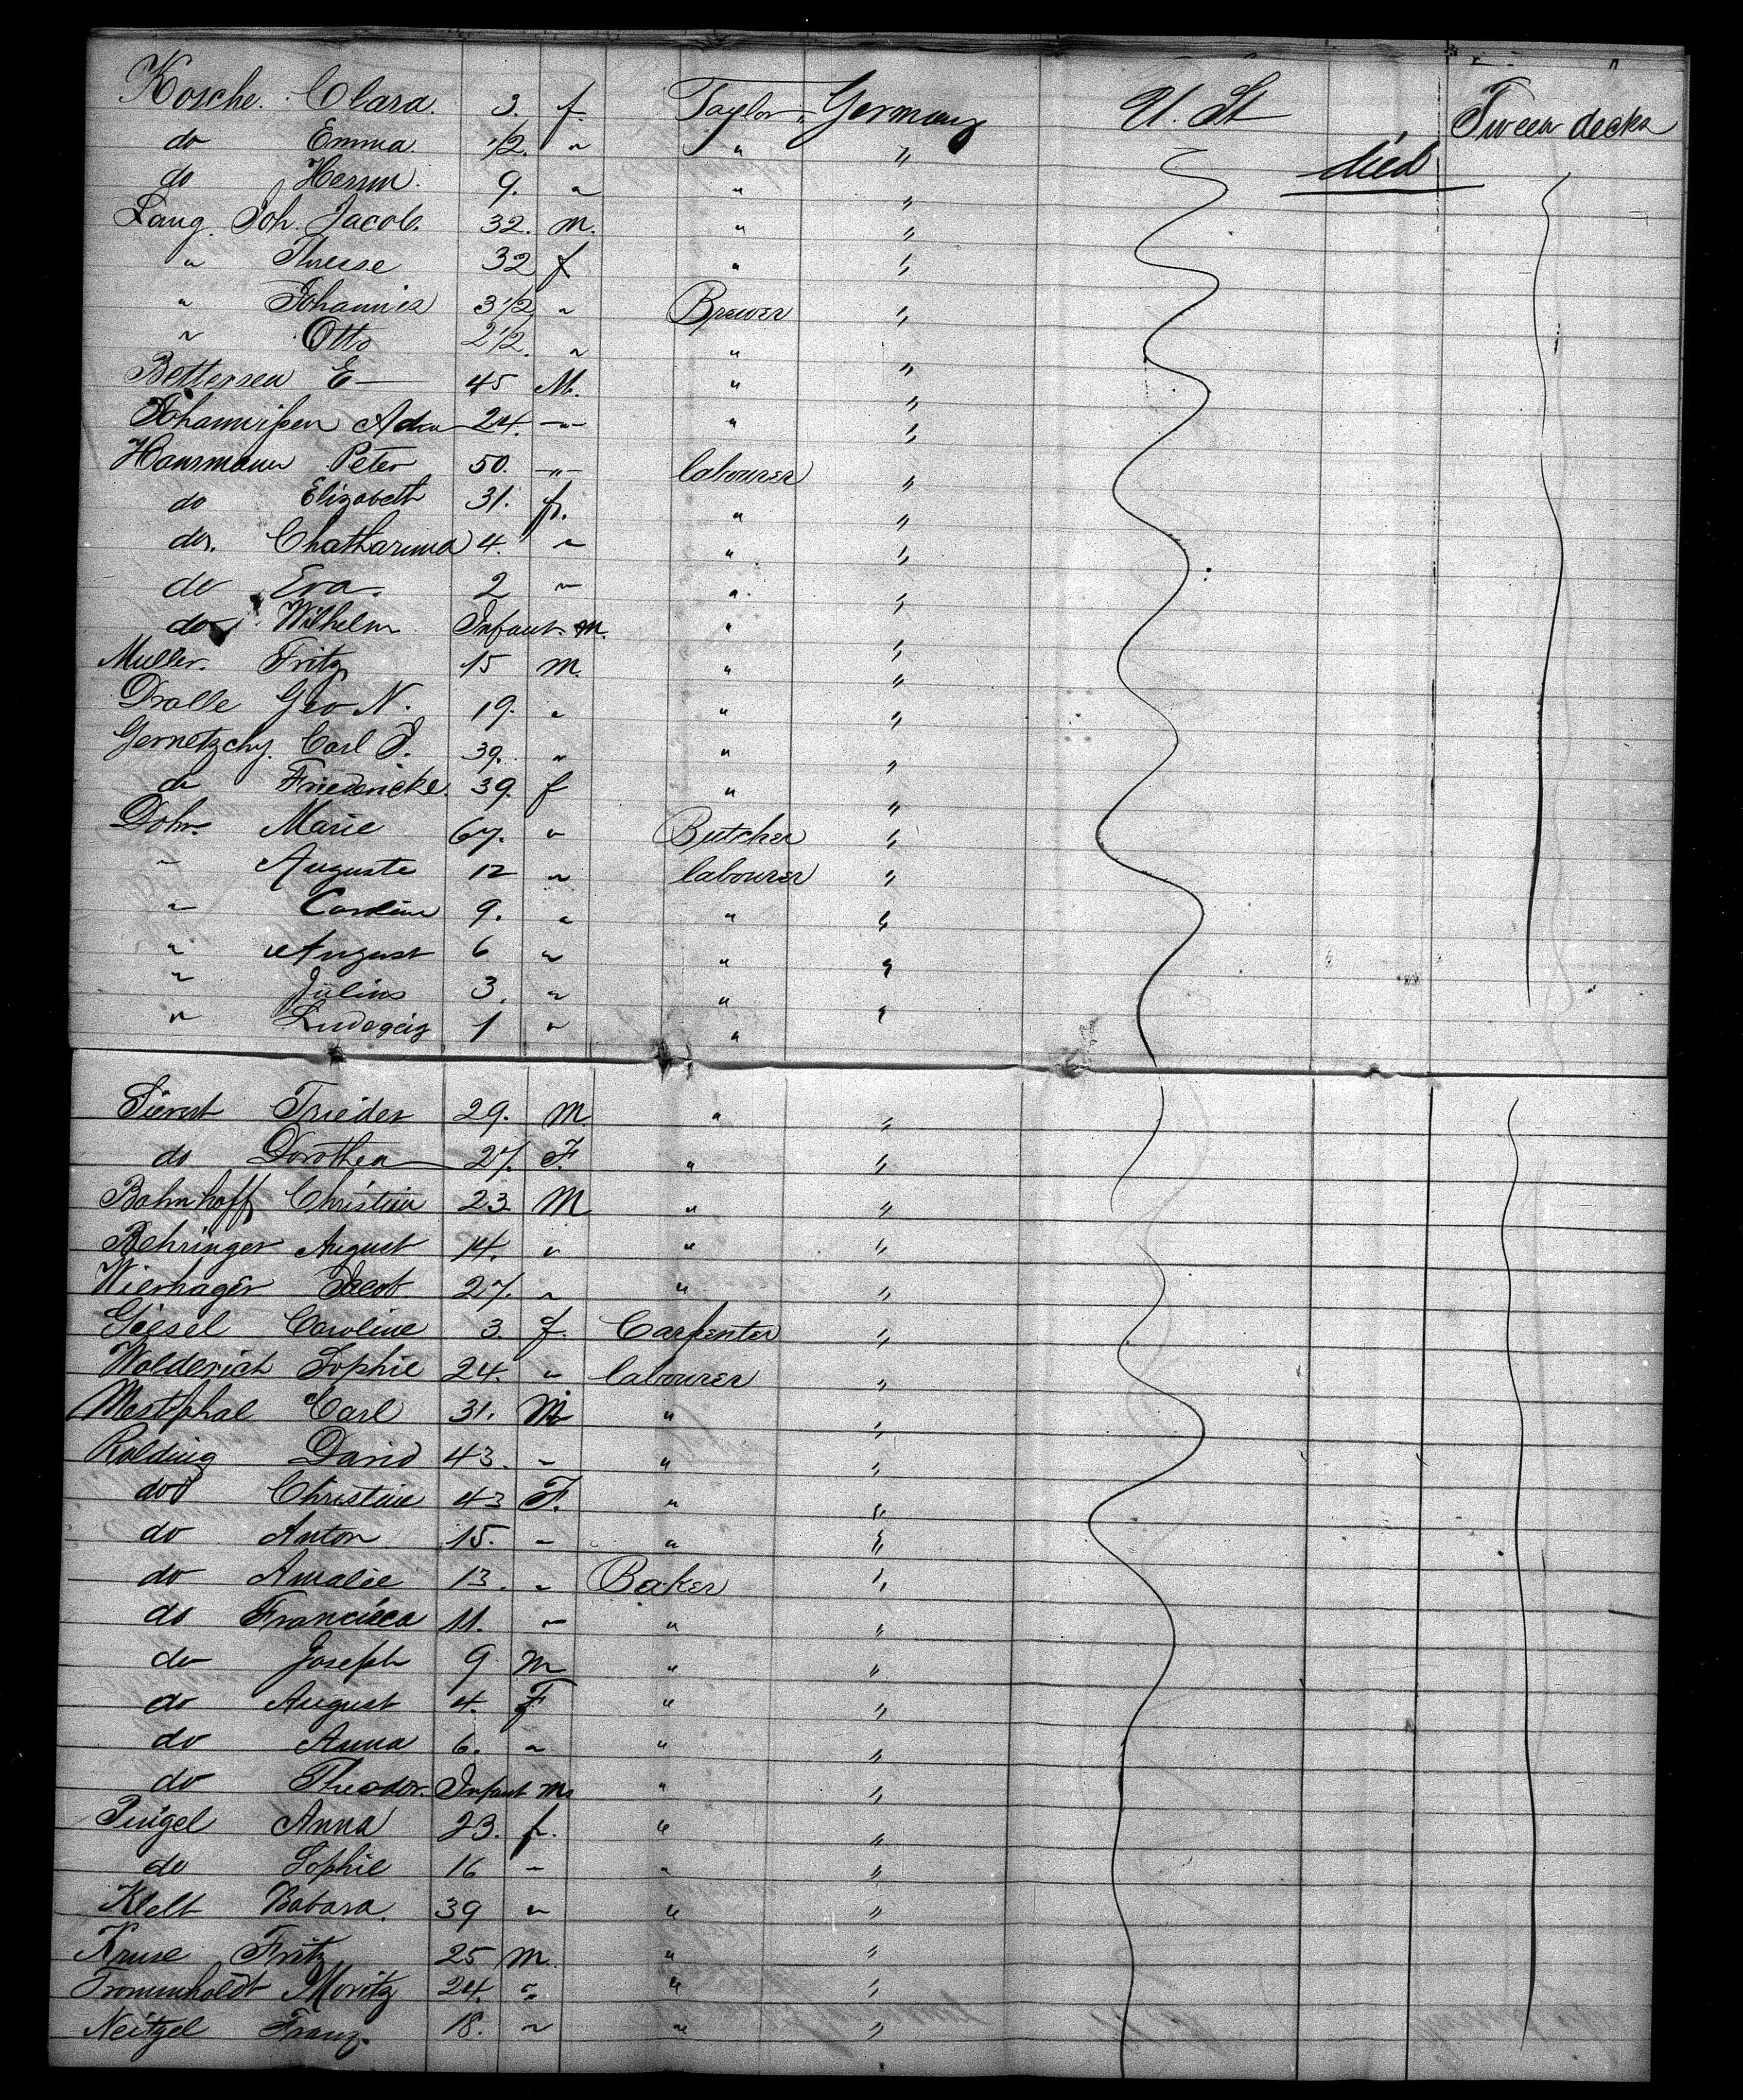 Kosche. Clara. 3. f. Taylor „ Germany U. St Tween decks
do Emma. 1/2. " " " died
do Herm. 9. " " "
Lang. Joh. Jacob. 32. m. " "
" Therese 32 f " "
" Johannis 3 1/2 " Brewer "
" Otto 2 1/2. " " "
Bettersen E— 45 M. " "
Johannißen Adm 24. —"— " "
Hausmann Peter 50. —"— labourer "
do Elizabeth 31. f. " "
do. Chatharina 4. " " "
do Eva. 2 " " "
do Wilhelm. Infant. m. " "
Muller. Fritz 15 m. " "
Dralle Geo N. 19. " " "
Gernetzchy. Carl J. 39. " " "
do Friedericke. 39. f " "
Dohr. Marie 67. " Butcher "
" Auguste 12 " labourer "
" Caroline 9. " " "
" August 6 " " "
" Julius 3. " " "
" Ludegcig 1 " "
Sierst Frieder 29. M. " "
do Dorothea 27. F. " "
Bahnhoff Christian 23. M " "
Behringer August 14. " " "
Wierhager Jacob 27. " " "
Giesel Caroline 3 f. Carpenter "
Wolderich Sophie 24. " labourer "
Westphal Carl 31. M " "
Rolding David 43. " " "
do Christine 43 F. " "
do Anton 15. " " "
do Amalie 13. " Baker "
do Francisca 11. " " "
do Joseph 9 m " "
do August 4. F " "
do Anna 6. " " "
do Theodor. Infant m. " "
Pingel Anna 23. f. " "
do Sophie 16 " " "
Klelt Babara. 39 " " "
Kruse Fritz 25 m. " "
Trommholdt Moritz 24. " " "
Neitzel Franz. 18. " " "